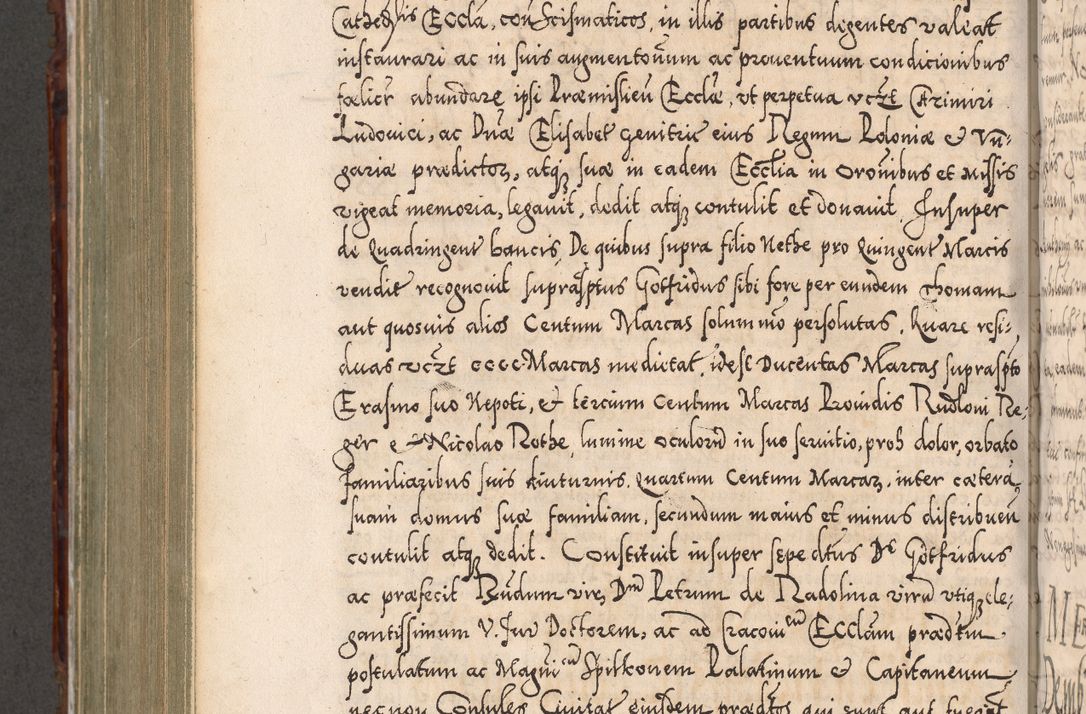 Cathedlis Eccla, con Scismaticos, in illis partibus degentes valeat
instaurari ac in suis augmentonum ac prouentuum condicionibus
fœlicr abundare ipsi Præmislien Ecclæ, vt perpetua vczt Cazimiri
Ludouici, ac Dnæ Elisabet genitric eius Regum Poloniæ et Vn-
gariæ prædictoz, atqz suæ in eadem Ecclia in oronibus et Missis
vigeat memoria, legauit, dedit atqz contulit et donauit. Insuper
de Quadringent bancis, De quibus supra filio Nethe pro Quingent Marcis
vendit recognouit suprasptus Gotfridus sibi fore per eundem Thomam
aut quosuis alios Centum Marcas solummo persolutas. Quare resi-
duas vczt cccc Marcas medietat, idest Ducentas Marcas supraspto
Erasmo suo Nepoti, et tercium Centum Marcas Prouidis Rudloni Re-
ger et Nicolao Rothe, lumine oculorum in suo seruitio, proh dolor, orbato
familiaribus suis diuturnis. Quartum Centum Marcaz, inter cætera
suam domus suæ familiam, secundum maius et minus distribuen
contulit atqz dedit. Constituit insuper sepe dtus Ds Gotfridus
ac præfecit Rudum virz Dnm Petrum de Radolina virum vtiqz ele-
gantissimum V. Jur Doctorem, ac ad Cracouien Ecclam prædtm
postulatum ac Magnicum Spitkonem Palatinum et Capitaneum
necnon Consules Ciuitat eiusdem prædtos qui sunt aut fuerint